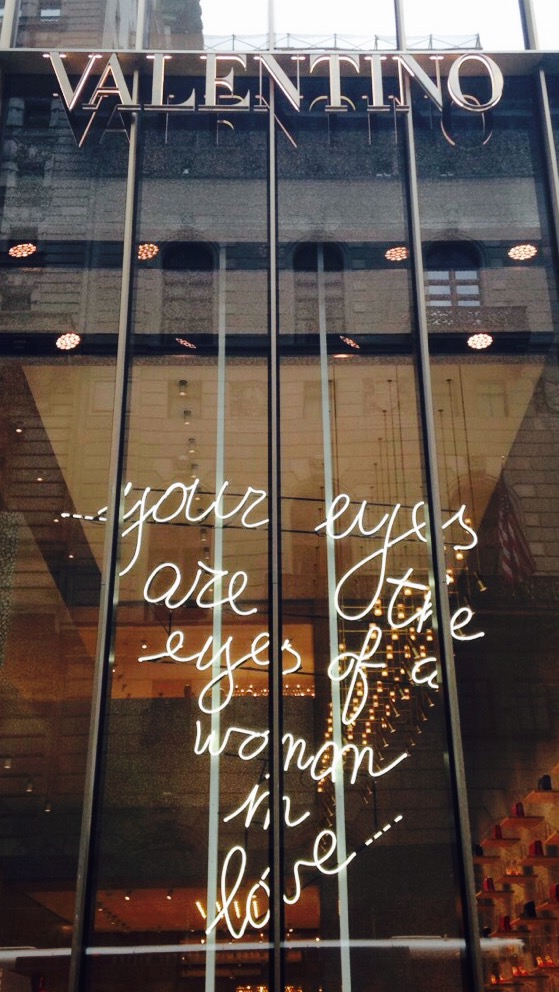 VALENTINO
your eyes
are the
eyes of a
woman
in
love